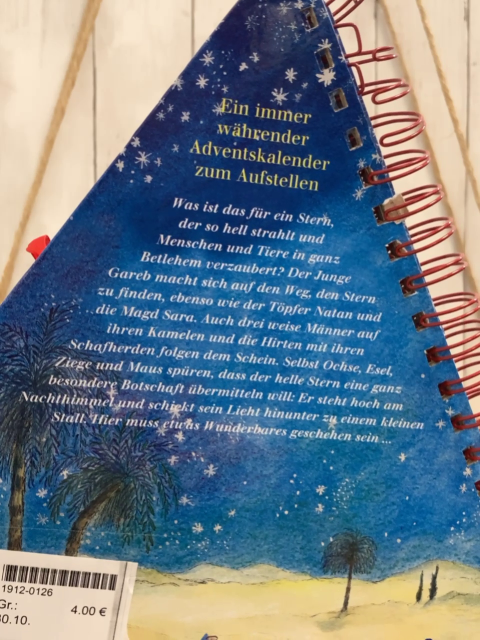 Ein immer
währender
Adventskalender
zum Aufstellen
Was ist das für ein Stern,
der so hell strahlt und
Menschen und Tiere in ganz
Betlehem verzaubert? Der Junge
Gareb macht sich auf den Weg, den Stern
zu finden, ebenso wie der Töpfer Natan und
die Magd Sara. Auch drei weise Männer auf
ihren Kamelen und die Hirten mit ihren
Schafherden folgen dem Schein. Selbst Ochse, Esel,
Ziege und Maus spüren, dass der helle Stern eine ganz
besondere Botschaft übermitteln will: Er steht hoch am
Nachthimmel und schickt sein Licht hinunter zu einem kleinen
Stall. Hier muss etwas Wunderbares geschehen sein ...
1912-0126
Gr.:
4.00 €
30.10.